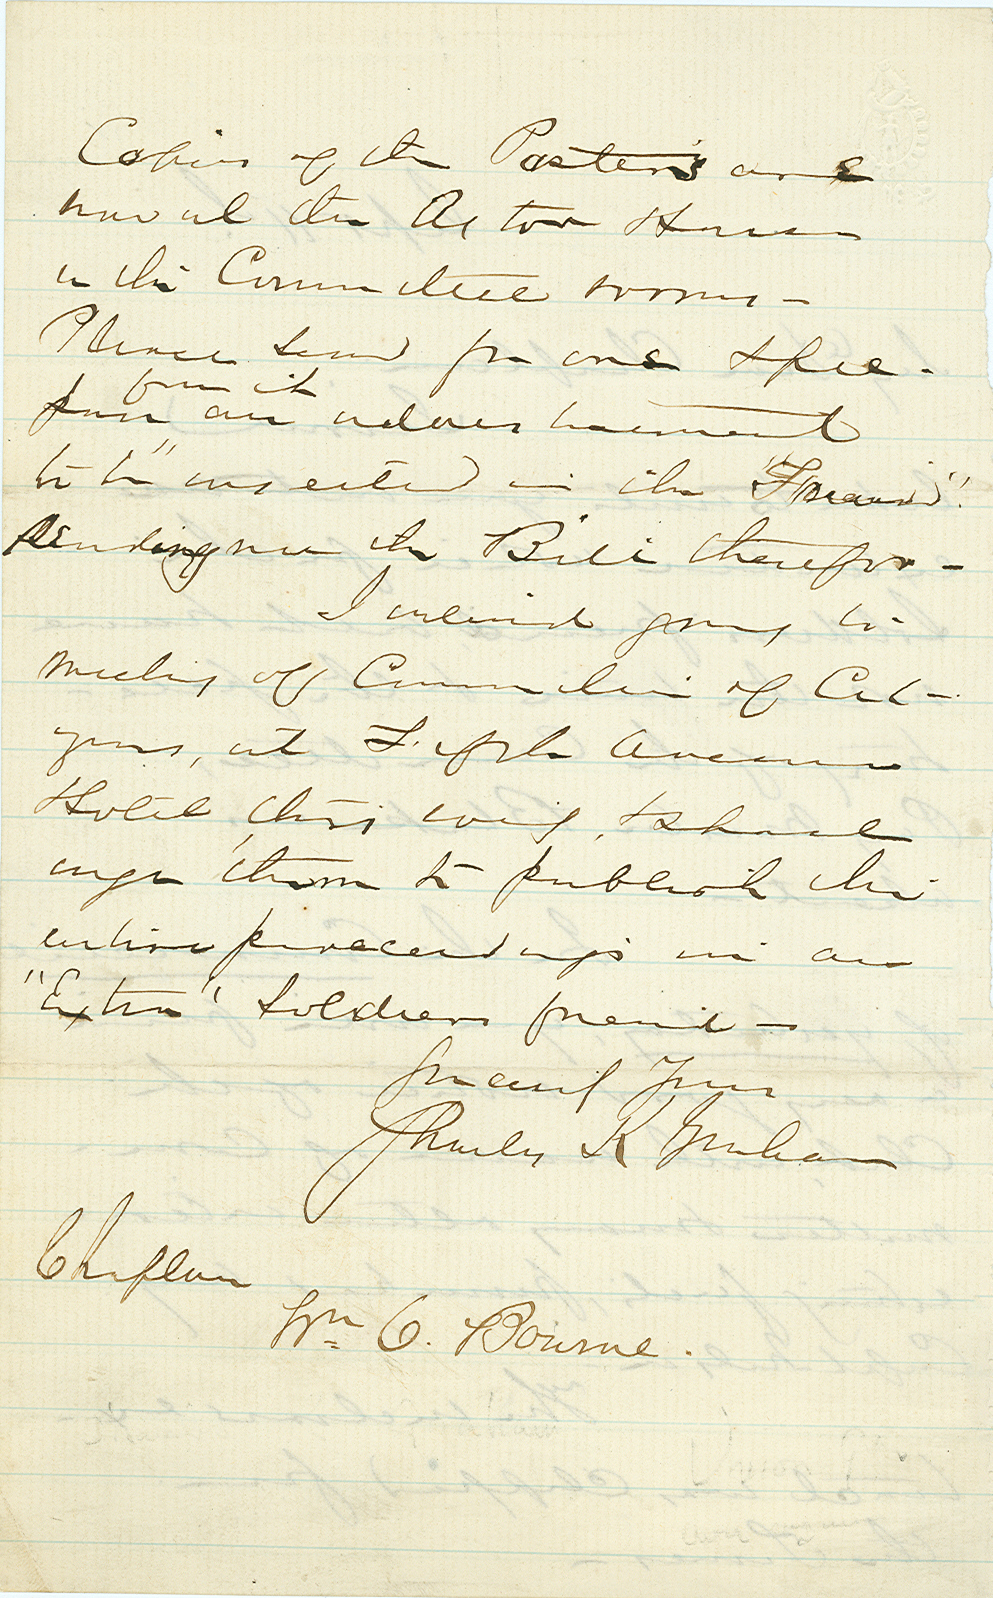 Copies of the Posters are
now at the Astor House
in the Committee rooms –
Please send for one & pre-
pare from it an advertisement
to be inserted in the "Friend".
sending me the Bill therefor –
I intend going to
meeting of Committee of Cit-
izens, at Fifth Avenue
Hotel this evig, & shall
urge them to publish the
entire proceedings in an
"Extra" Soldiers friend –
Yours
Charles K Graham
Chaplain
Wm C. Bourne.